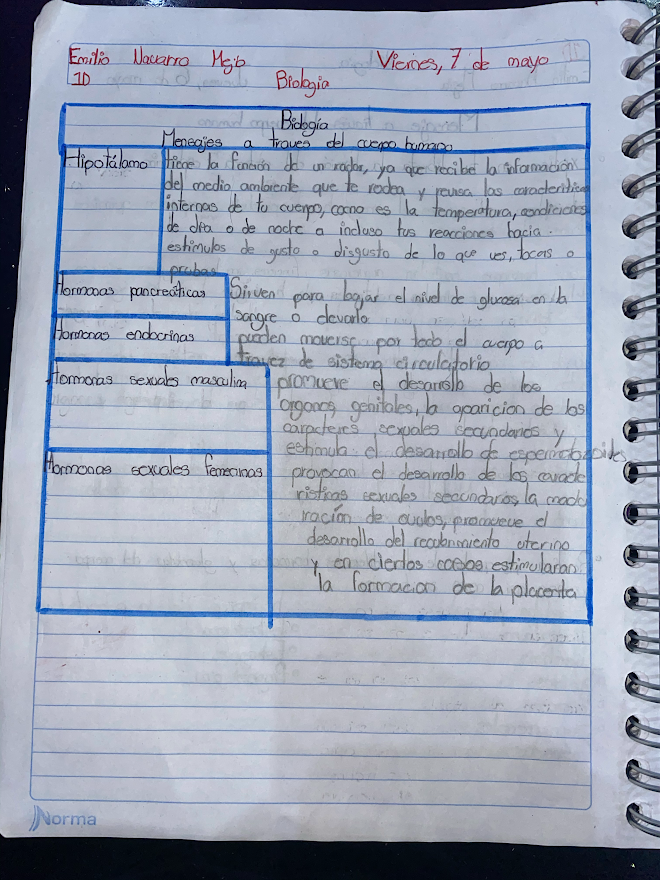 Emilio Navarro Mejib Viernes, 7 de mayo
1D Biologia
Biología
Mensajes a traves del cuerpo humano
Hipotálamo tiene la función de un radar, ya que recibe la información
del medio ambiente que te rodea y revisa las características
internas de tu cuerpo, como es la temperatura, condiciones
de dia o de noche a incluso tus reacciones hacia
estimulos de gusto o disgusto de lo que ves, tocas o
probas
Hormonas pancreáticas Sirven para bajar el nivel de glucosa en la
sangre o elevarlo
Hormonas endocrinas pueden moverse por todo el cuerpo a
travez de sistema circulatorio
Hormonas sexuales masculina promueve el desarrollo de los
organos genitales, la aparicion de los
caracteres sexuales secundarios y
estimula el desarrollo de espermatozoides
Hormonas sexuales femeninas provocan el desarrollo de los caracte
risticas sexuales secundarias, la madu
ración de ovulos, promueve el
desarrollo del recubrimiento uterino
y en ciertos casos estimularan
la formacion de la placenta
Norma